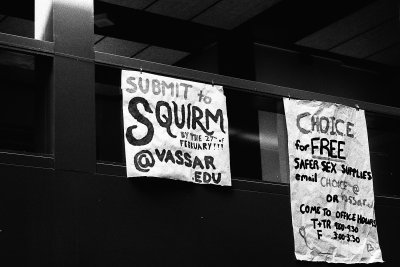 SUBMIT to
SQUIRM
BY THE 27th of
FEBRUARY!!!
@VASSAR
.EDU
CHOICE
for FREE
SAFER SEX SUPPLIES
email CHOICE@
OR VASSAR.
COME TO OFFICE HOURS
T+TR
F 3:00-3:30